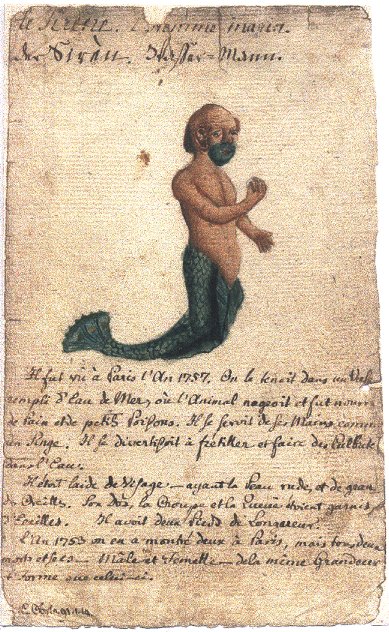 der Sirên. Wasser-Mann.
Il fut vû à Paris l'An 1757. On le tenoit dans un
rempli d'Eau de Mer, où l'Animal nageoit et fut nourri
de Pain et de petits Poissons. Il se servit de ses Mains comme
un Singe. Il se divertissoit à fretiller et faire des Culbutes
dans l'Eau.
Il étoit laide de Visage, ayant la Peau rude, et de grandes
Oreilles. Son Dos, la Croupe et la Queue étoient garnis
d'Ecailles. Il avoit deux Pieds de Longueur.
L'An 1753 on en a montré deux à Paris, mais tous deux
morts et secs Mâle et Femelle de la même Grandeur
et forme que celui-ci.